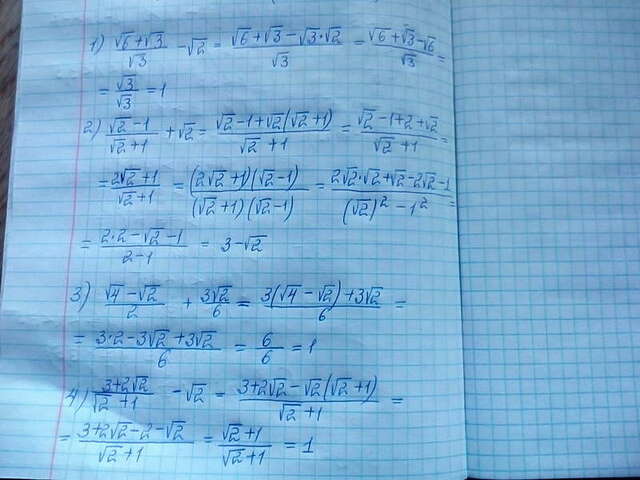 1) (√6+√3)/√3 − √2 = (√6+√3−√3·√2)/√3 = (√6+√3−√6)/√3 =
= √3/√3 = 1
2) (√2−1)/(√2+1) + √2 = (√2−1+√2(√2+1))/(√2+1) = (√2−1+2+√2)/(√2+1) =
= (2√2+1)/(√2+1) = ((2√2+1)(√2−1))/((√2+1)(√2−1)) = (2√2·√2+√2−2√2−1)/((√2)²−1²) =
= (2·2−√2−1)/(2−1) = 3−√2
3) (√4−√2)/2 + 3√2/6 = (3(√4−√2)+3√2)/6 =
= (3·2−3√2+3√2)/6 = 6/6 = 1
4) (3+2√2)/(√2+1) − √2 = (3+2√2−√2(√2+1))/(√2+1) =
= (3+2√2−2−√2)/(√2+1) = (√2+1)/(√2+1) = 1